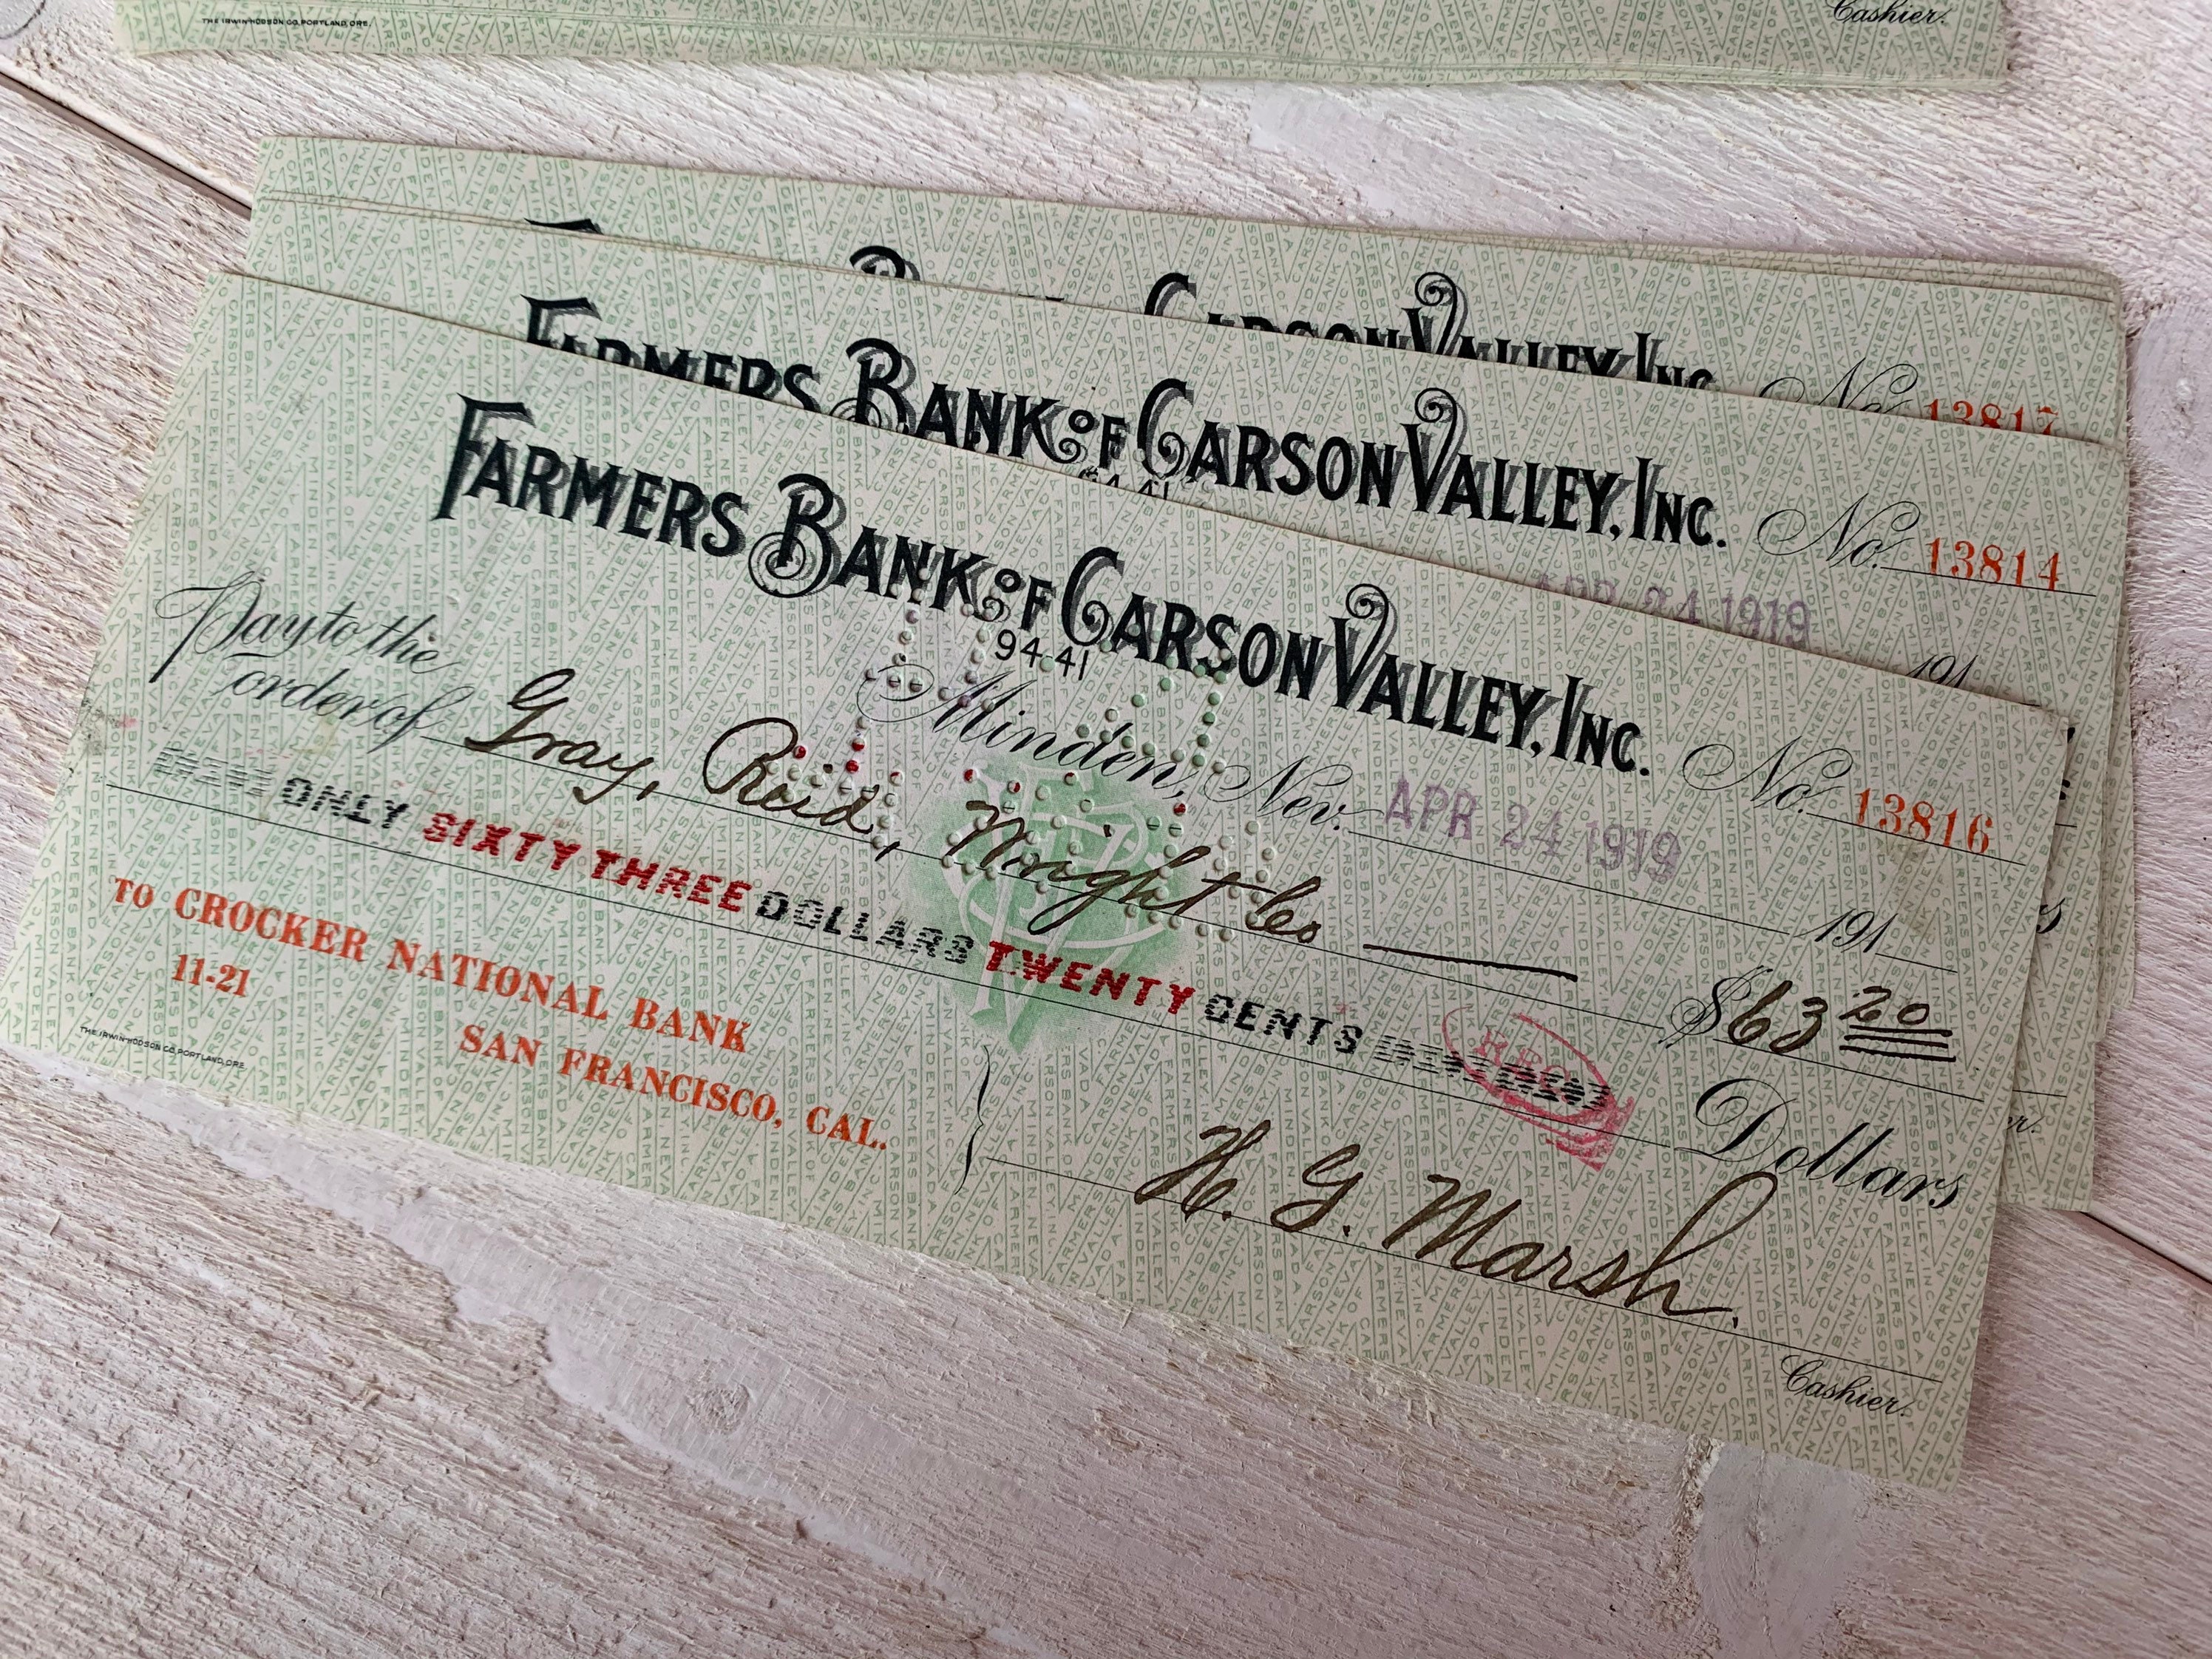 THE IRWIN-HODSON CO. PORTLAND, ORE.
Cashier.
CARSON VALLEY, INC.
No. 13817
FARMERS BANK OF CARSON VALLEY, INC.
No. 13814
APR 24 1919
191
FARMERS BANK OF CARSON VALLEY, INC.
94-41
No. 13816
Minden, Nev. APR 24 1919 191
Pay to the order of Gray, Reid, Wright Co $63 20
ONLY SIXTY THREE DOLLARS TWENTY CENTS Dollars
TO CROCKER NATIONAL BANK
11-21
SAN FRANCISCO, CAL.
H. G. Marsh.
Cashier.
THE IRWIN-HODSON CO. PORTLAND, ORE.